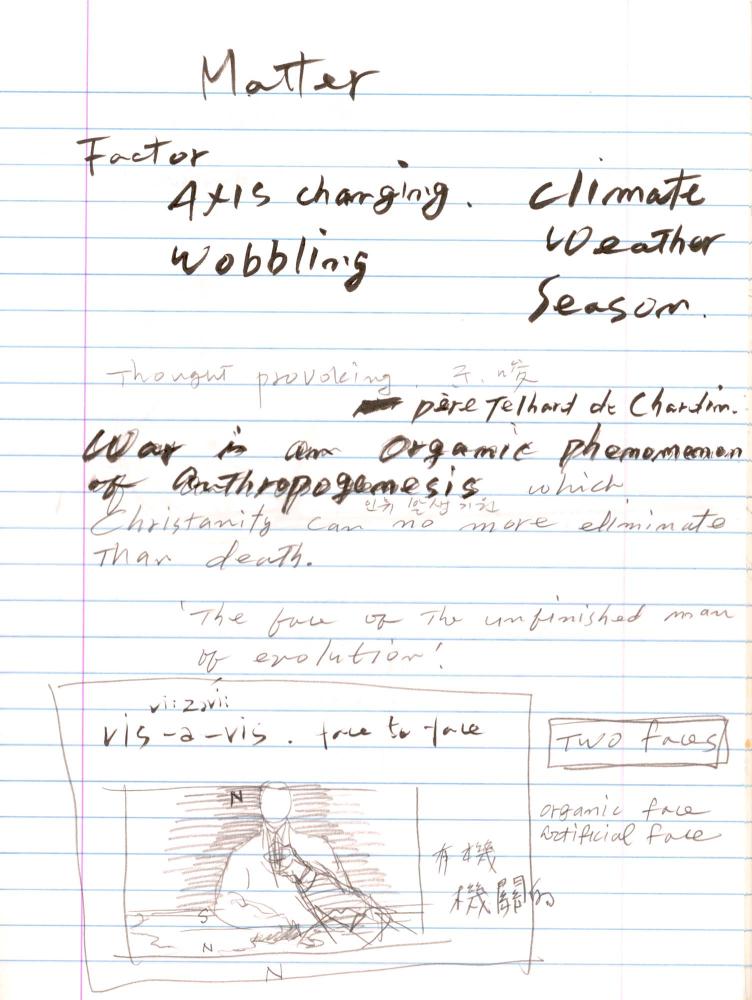 Matter
Factor
Axis changing. Climate
Wobbling Weather
Season.
Thought provoking.
père Telhard de Chardin.
War is an organic phenomenon
of Anthropogenesis which
인류 발생 기원
Christanity can no more eliminate
than death.
'The face of the unfinished man
of evolution'.
vi:zəvi:
vis-a-vis. face to face
Two faces
organic face
artificial face
N
有機
機關的
S
N
S
N